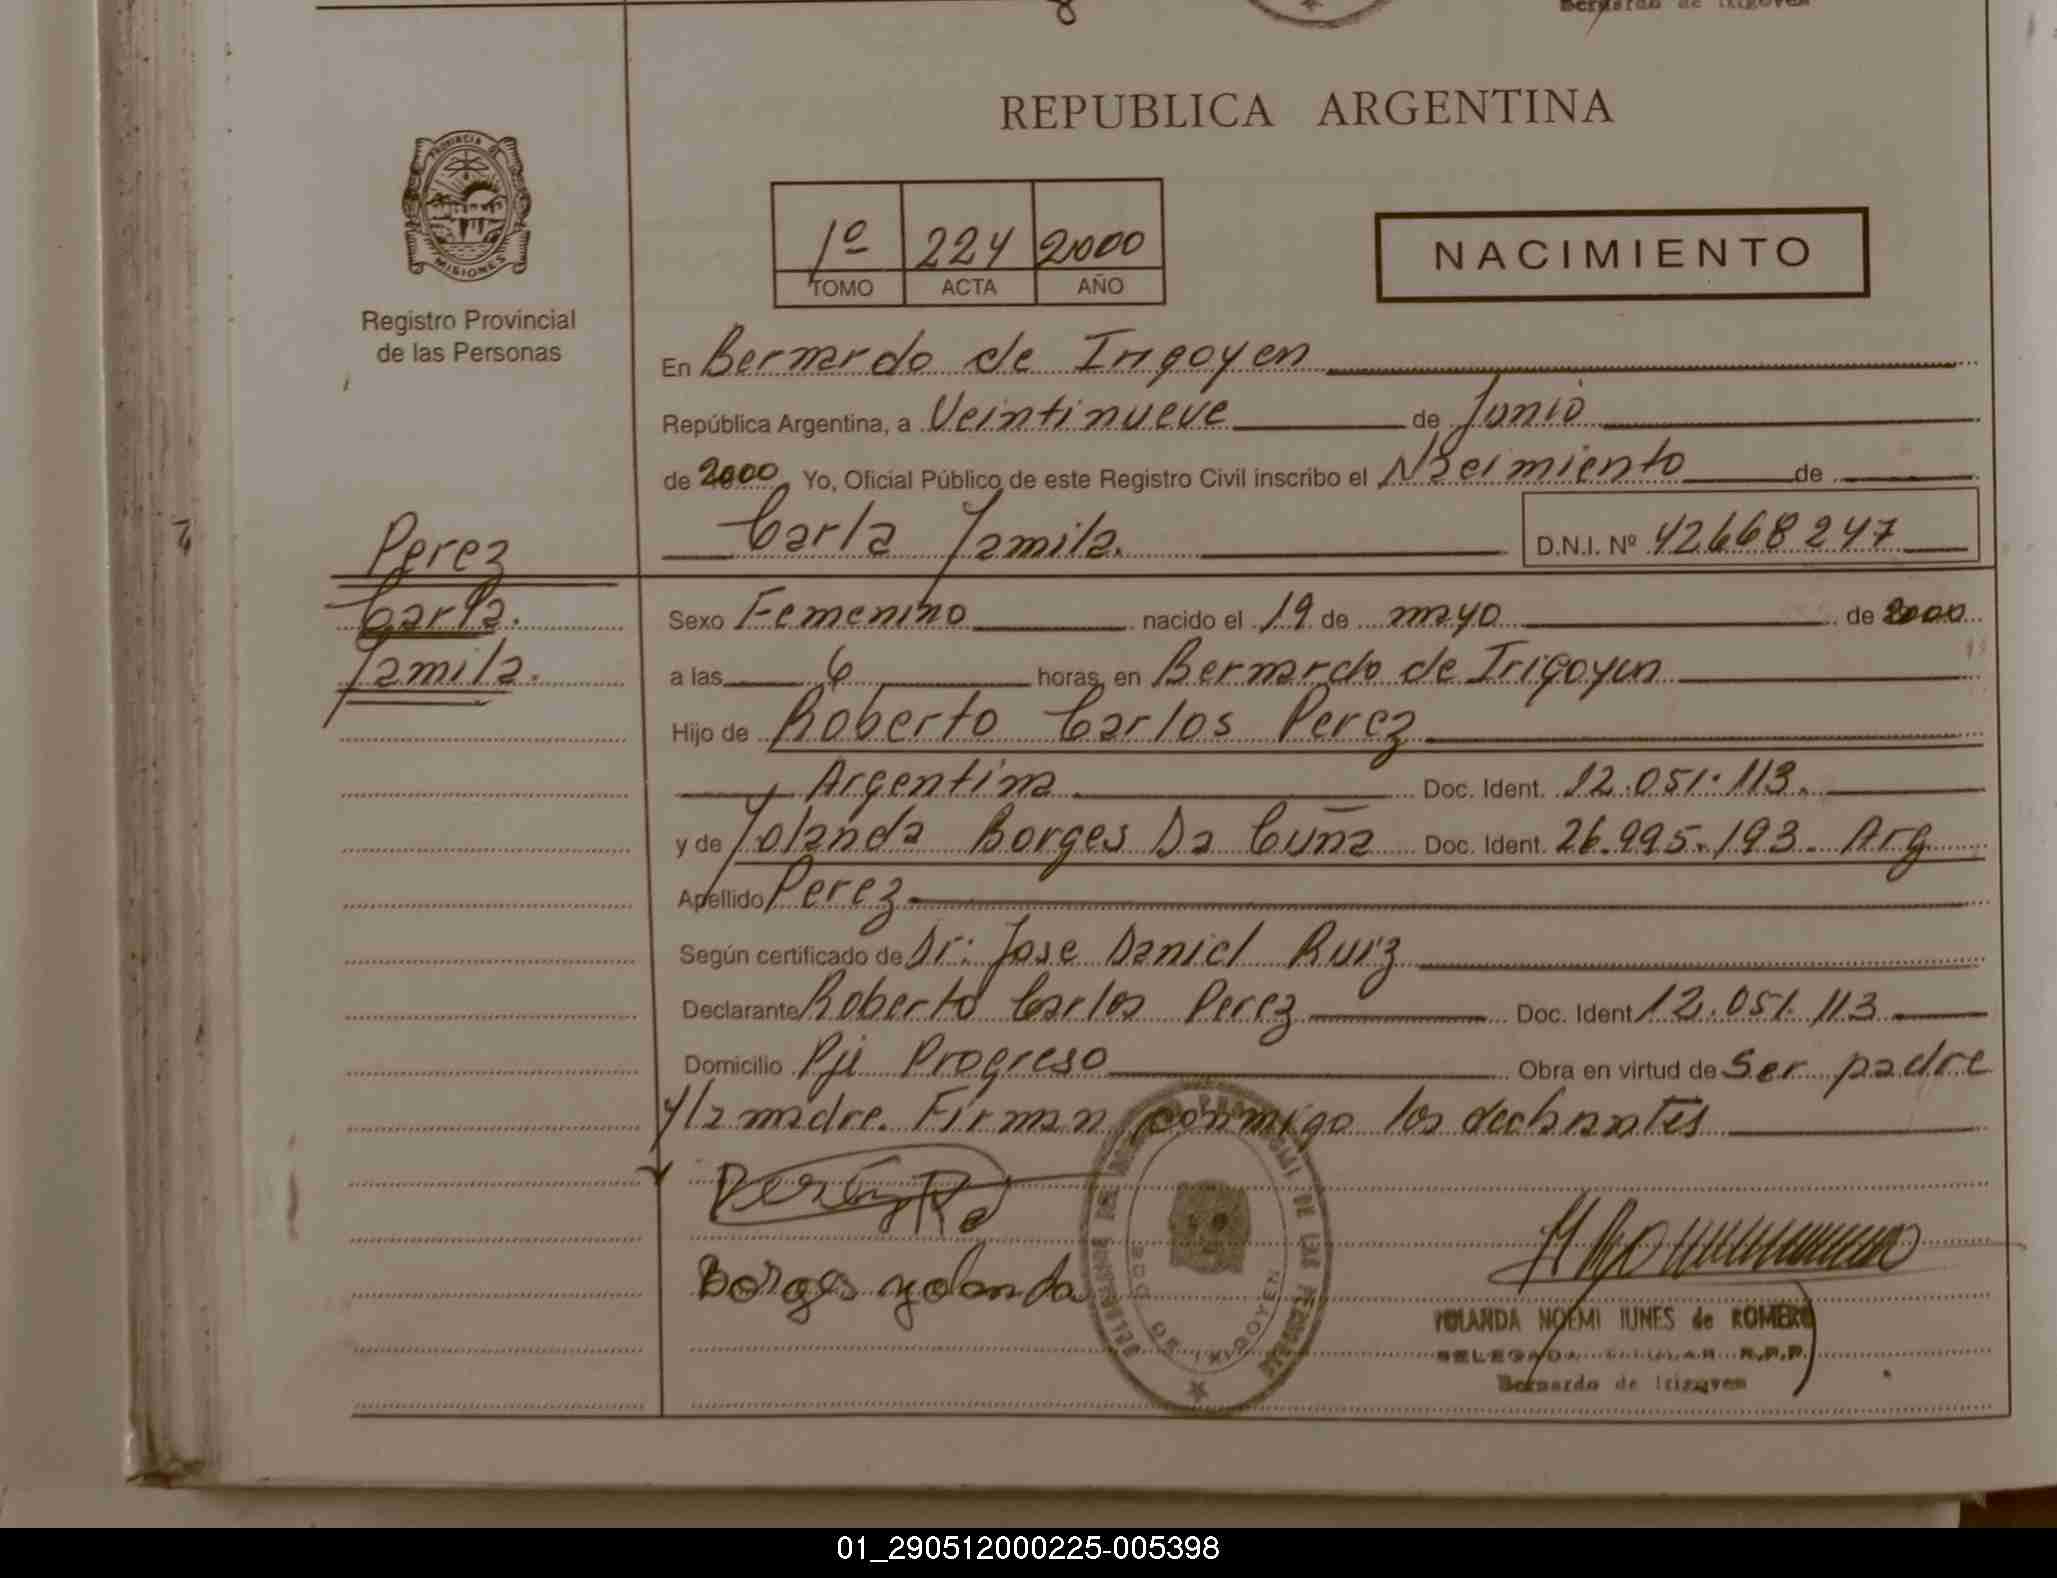 Bernardo de Irigoyen
REPUBLICA ARGENTINA
PROVINCIA DE
MISIONES
Registro Provincial
de las Personas
1º 224 2000
TOMO ACTA AÑO
NACIMIENTO
En Bernardo de Irigoyen
República Argentina, a Veintinueve de Junio
de 2000 Yo, Oficial Público de este Registro Civil inscribo el Nacimiento de
Carla Yamila. D.N.I. Nº 42668247
Perez
Carla.
Yamila.
Sexo Femenino nacido el 19 de mayo de 2000
a las 6 horas, en Bernardo de Irigoyen
Hijo de Roberto Carlos Perez
Argentina Doc. Ident. 12.051.113.
y de Yolanda Borges Da Cuña Doc. Ident. 26.995.193. Arg
Apellido Perez
Según certificado de Dr: Jose Daniel Ruiz
Declarante Roberto Carlos Perez Doc. Ident 12.051.113
Domicilio Pje Progreso Obra en virtud de ser padre
y la madre. Firman conmigo los declarantes
Borges yolanda
DE LAS PERSONAS
DE IRIGOYEN
YOLANDA NOEMI IUNES de ROMERO
DELEGADA TITULAR R.P.P.
Bernardo de Irigoyen
01_290512000225-005398